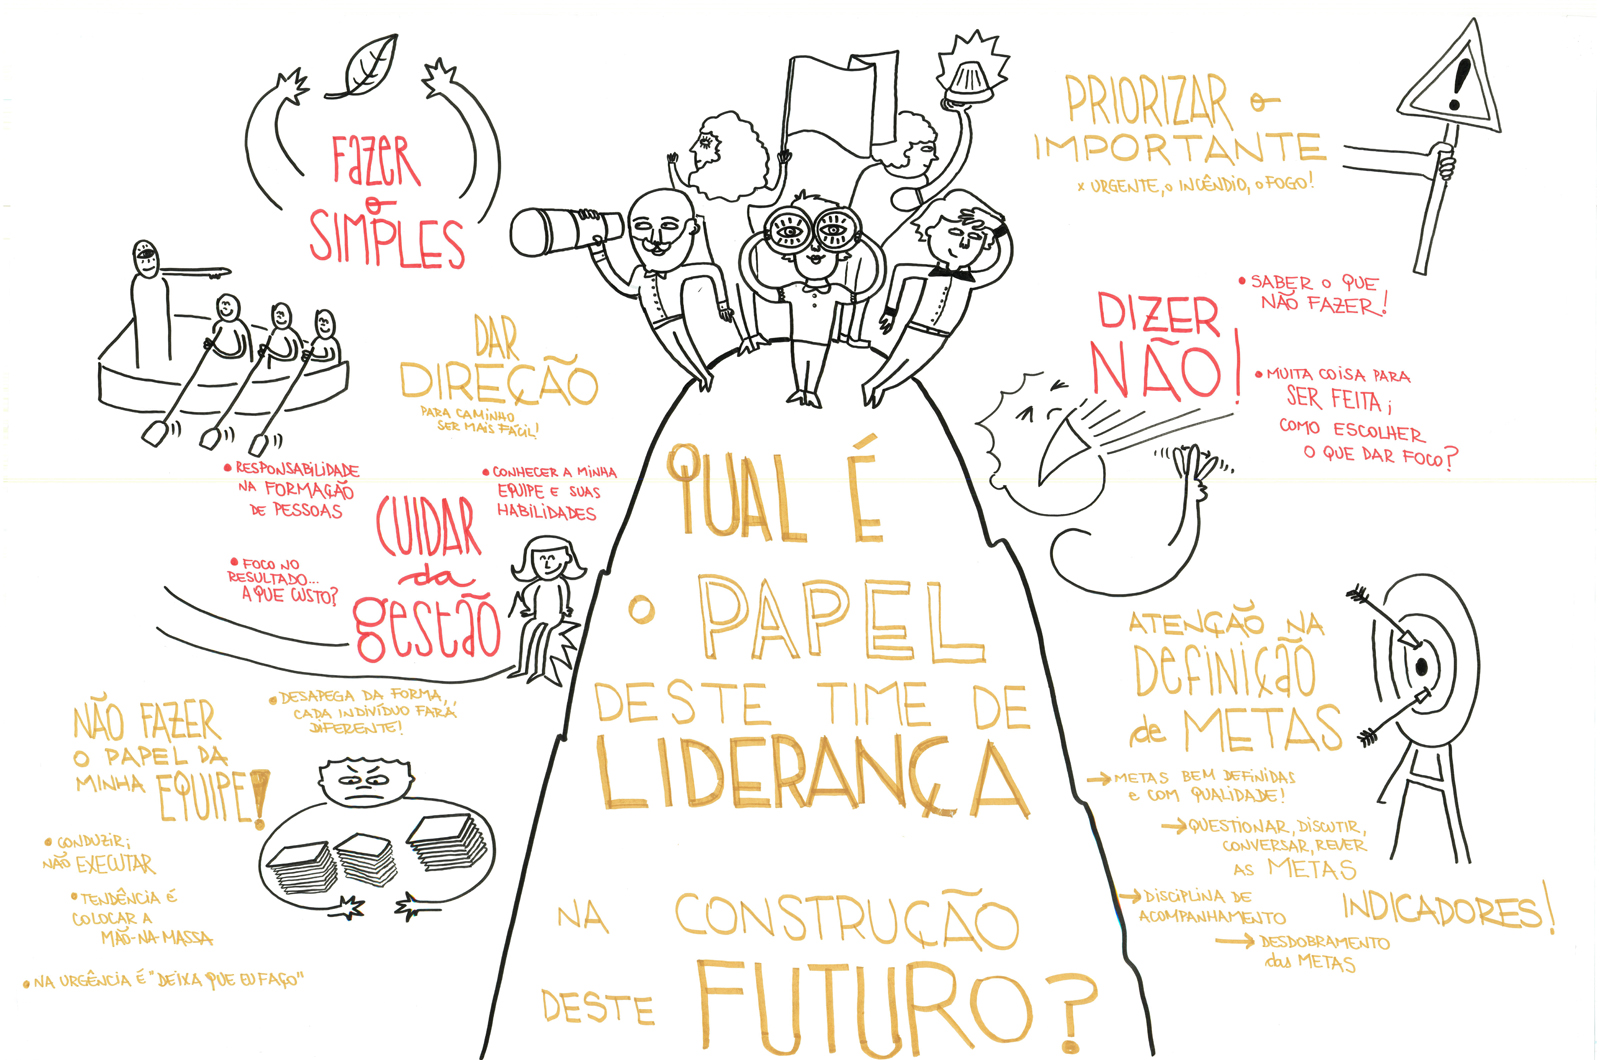 FAZER
O
SIMPLES
DAR
DIREÇÃO
PARA CAMINHO
SER MAIS FÁCIL!
• RESPONSABILIDADE
NA FORMAÇÃO
DE PESSOAS
• CONHECER A MINHA
EQUIPE E SUAS
HABILIDADES
CUIDAR
da
gestão
• FOCO NO
RESULTADO...
A QUE CUSTO?
NÃO FAZER
O PAPEL DA
MINHA EQUIPE!
• DESAPEGA DA FORMA,,
CADA INDIVÍDUO FARÁ
DIFERENTE!
• CONDUZIR;
NÃO EXECUTAR
• TENDÊNCIA É
COLOCAR A
MÃO-NA-MASSA
• NA URGÊNCIA É "DEIXA QUE EU FAÇO"
QUAL É
O PAPEL
DESTE TIME DE
LIDERANÇA
NA CONSTRUÇÃO
DESTE FUTURO?
PRIORIZAR o
IMPORTANTE
x URGENTE, o INCÊNDIO, o FOGO!
DIZER
NÃO!
• SABER O QUE
NÃO FAZER!
• MUITA COISA PARA
SER FEITA;
COMO ESCOLHER
O QUE DAR FOCO?
ATENÇÃO NA
DEFINIÇÃO
de METAS
→ METAS BEM DEFINIDAS
e COM QUALIDADE!
→ QUESTIONAR, DISCUTIR,
CONVERSAR, REVER
AS METAS
→ DISCIPLINA DE
ACOMPANHAMENTO
INDICADORES!
→ DESDOBRAMENTO
das METAS